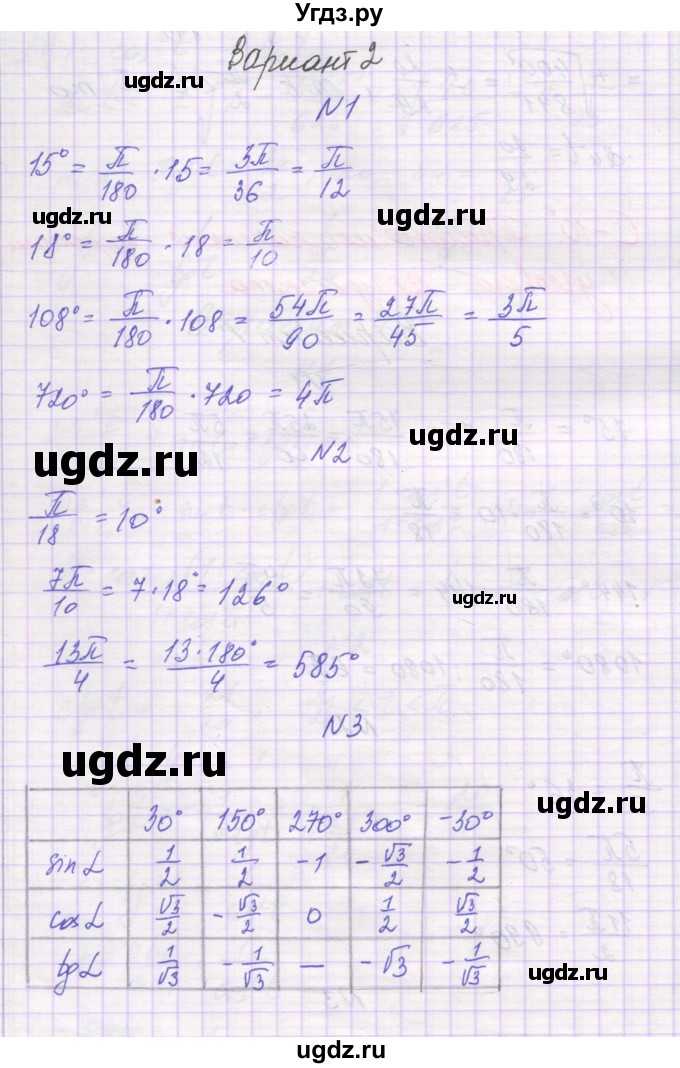 Угдз.ру
Вариант 2
ugdz.ru
N1
15° = π/180 · 15 = 3π/36 = π/12
ugdz.ru
ugdz.ru
18° = π/180 · 18 = π/10
108° = π/180 · 108 = 54π/90 = 27π/45 = 3π/5
720° = π/180 · 720 = 4π
ugdz.ru
ugdz.ru
N2
π/18 = 10°
7π/10 = 7·18° = 126°
ugdz.ru
13π/4 = 13·180°/4 = 585°
N3
ugdz.ru
ugdz.ru
30° 150° 270° 300° -30°
sin L 1/2 1/2 -1 -√3/2 -1/2
cos L √3/2 -√3/2 0 1/2 √3/2
tg L 1/√3 -1/√3 — -√3 -1/√3
ugdz.ru
ugdz.ru
ugdz.ru